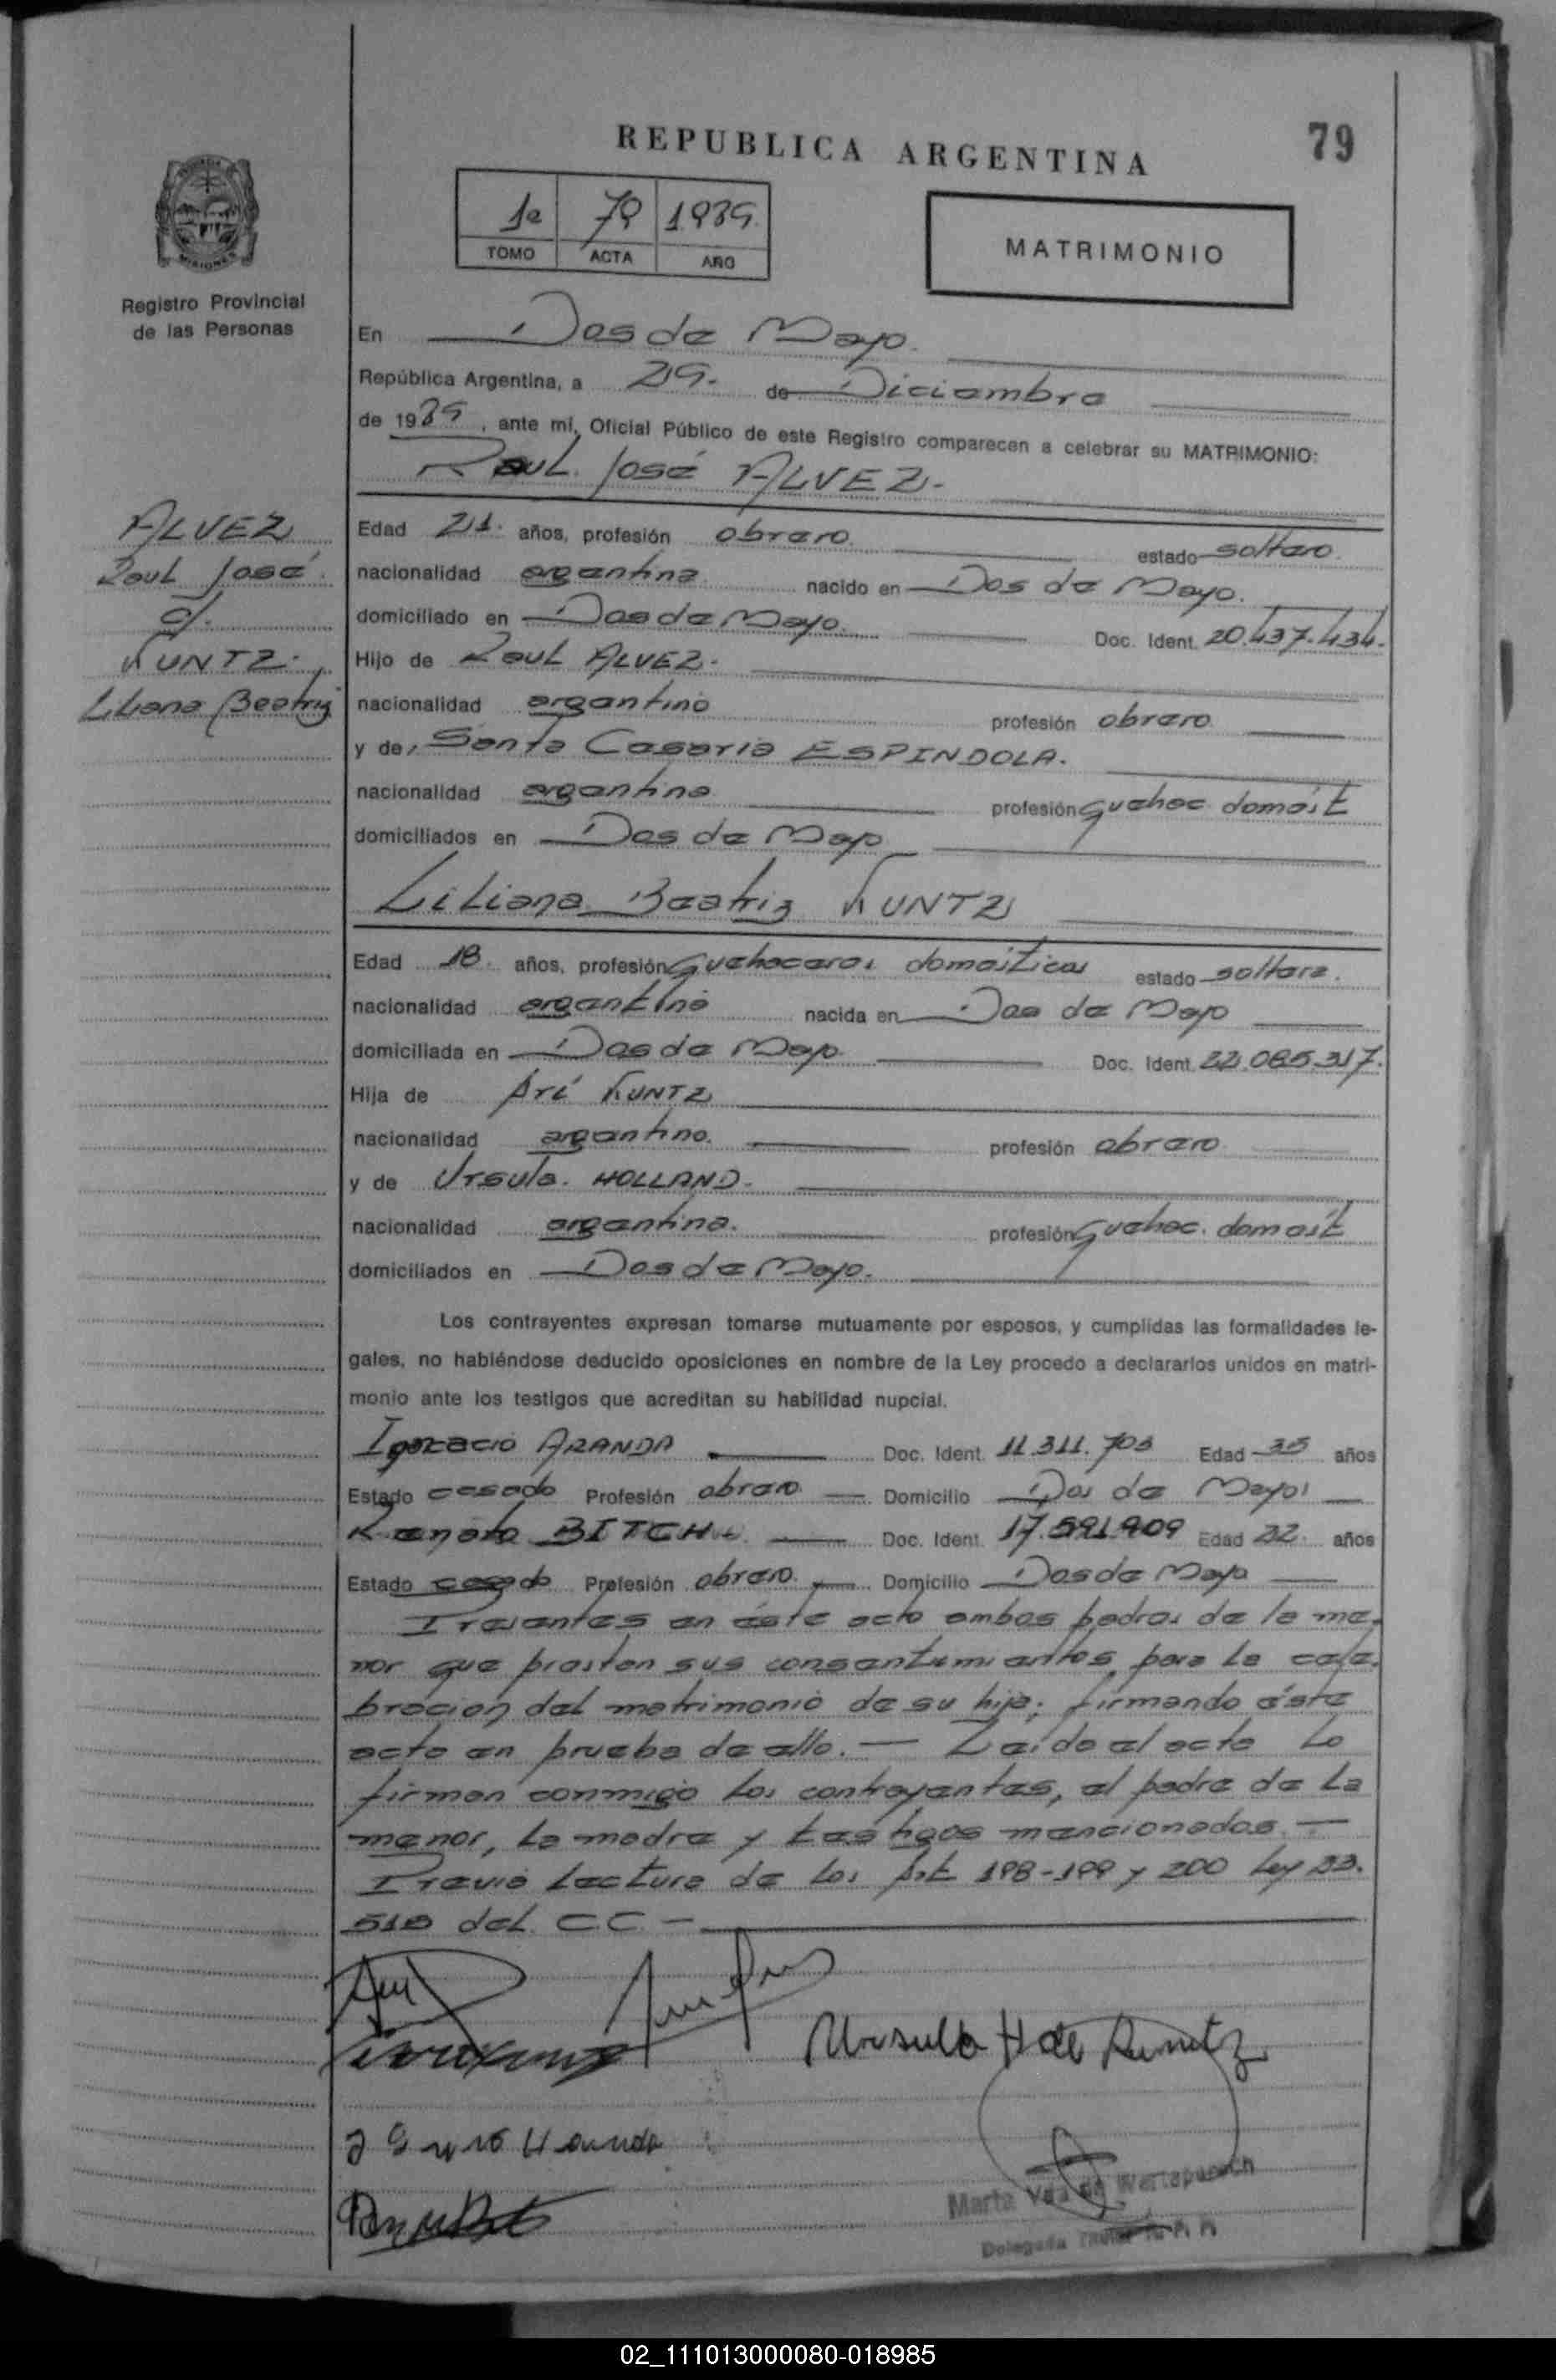 REPUBLICA ARGENTINA
79
1º 79 1.989.
TOMO ACTA AÑO
MATRIMONIO
MISIONES
Registro Provincial
de las Personas
En Dos de Mayo.
República Argentina, a 29. de Diciembre
de 1989, ante mí, Oficial Público de este Registro comparecen a celebrar su MATRIMONIO:
Raul José ALVEZ.
ALVEZ
Raul José
c/.
KUNTZ.
Liliana Beatriz
Edad 21. años, profesión obrero. estado soltero.
nacionalidad argentina nacido en Dos de Mayo.
domiciliado en Dos de Mayo. Doc. Ident. 20.437.434.
Hijo de Raul ALVEZ.
nacionalidad argentino profesión obrero
y de, Santa Cesaria ESPINDOLA.
nacionalidad argentina profesión quehac. domést
domiciliados en Dos de Mayo
Liliana Beatriz KUNTZ
Edad 18. años, profesión quehaceres domésticos estado soltera.
nacionalidad argentina nacida en Dos de Mayo
domiciliada en Dos de Mayo. Doc. Ident. 22.085.317.
Hija de Arí KUNTZ
nacionalidad argentino. profesión obrero
y de Ursula. HOLLAND.
nacionalidad argentina. profesión quehac. domést
domiciliados en Dos de Mayo.
Los contrayentes expresan tomarse mutuamente por esposos, y cumplidas las formalidades le-
gales, no habiéndose deducido oposiciones en nombre de la Ley procedo a declararlos unidos en matri-
monio ante los testigos que acreditan su habilidad nupcial.
Ignacio ARANDA Doc. Ident. 11.311.703 Edad 35 años
Estado casado Profesión obrero Domicilio Dos de Mayo
Renato Doc. Ident. 17.591.909 Edad 22 años
Estado casado Profesión obrero. Domicilio Dos de Mayo
Presentes en éste acto ambos padres de la me-
nor que prestan sus consentimientos para la cele-
bración del matrimonio de su hija; firmando éste
acto en prueba de ello. — Leído el acta lo
firman conmigo los contrayentes, el padre de la
menor, la madre y testigos mencionados. —
Previo lectura de los Art 198-199 y 200 Ley 23.
515 del C.C. —
Ursula H de Kuntz
Marta Vda de
Delegada Titular
02_111013000080-018985